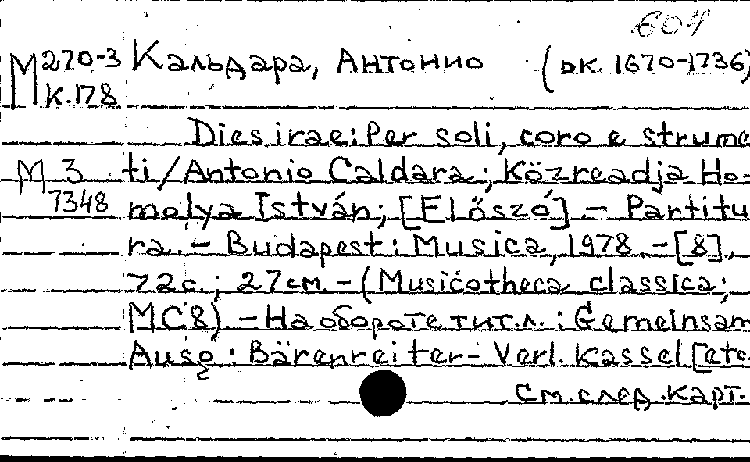 607
М 270-3 Кальдара, Антонио (ок. 1670-1736)
К.178
Dies irae: Per soli, coro e strume
М 3 ti/Antonio Caldara; Közreadja Ho-
7348 molya István; [Előszó]. - Partitu
ra. - Budapest: Musica, 1978. - [8],
72 с.; 27 см. - (Musicotheca classica;
MC8). - На обороте тит.л.: Gemeinsam
Ausg.: Bärenreiter-Verl. Kassel [etc.
См. след. карт.